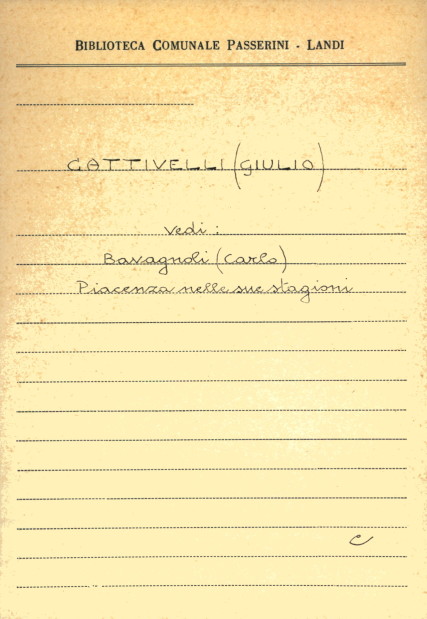 BIBLIOTECA COMUNALE PASSERINI - LANDI
CATTIVELLI (GIULIO)
Vedi :
Bavagnoli (Carlo)
Piacenza nelle sue stagioni
C